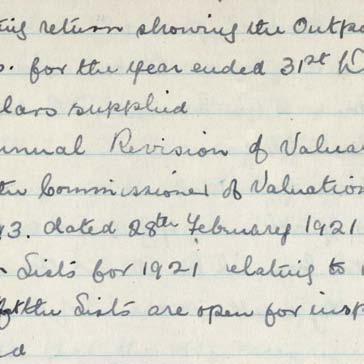 ing return showing the Outpo
s. for the year ended 31st D
ulars supplied
nnual Revision of Valua
the Commissioner of Valuation
43. dated 28th February 1921
Lists for 1921 relating to
the Lists are open for insp
ed